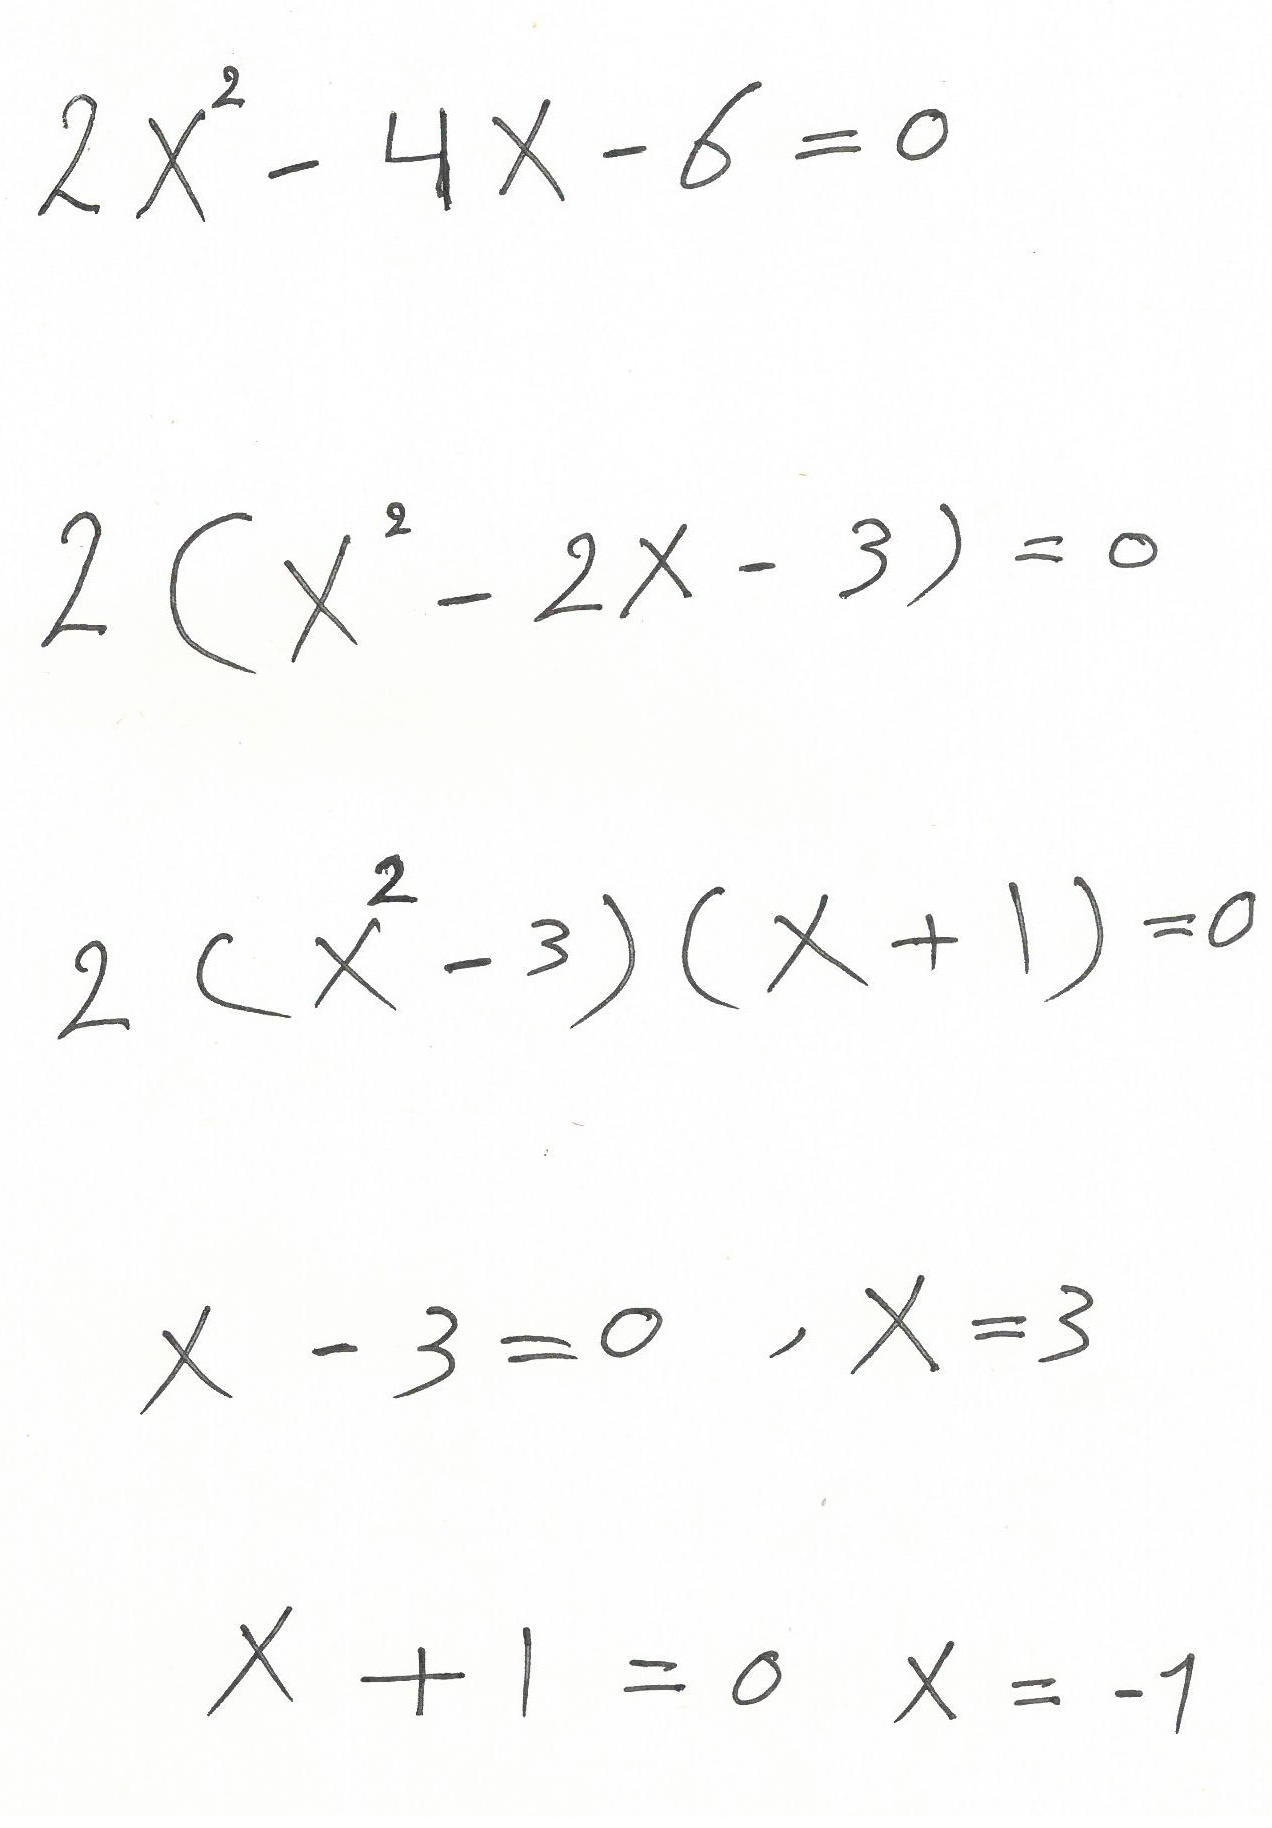 2x² - 4x - 6 = 0
2(x² - 2x - 3) = 0
2(x² - 3)(x + 1) = 0
x - 3 = 0 , x = 3
x + 1 = 0 x = -1